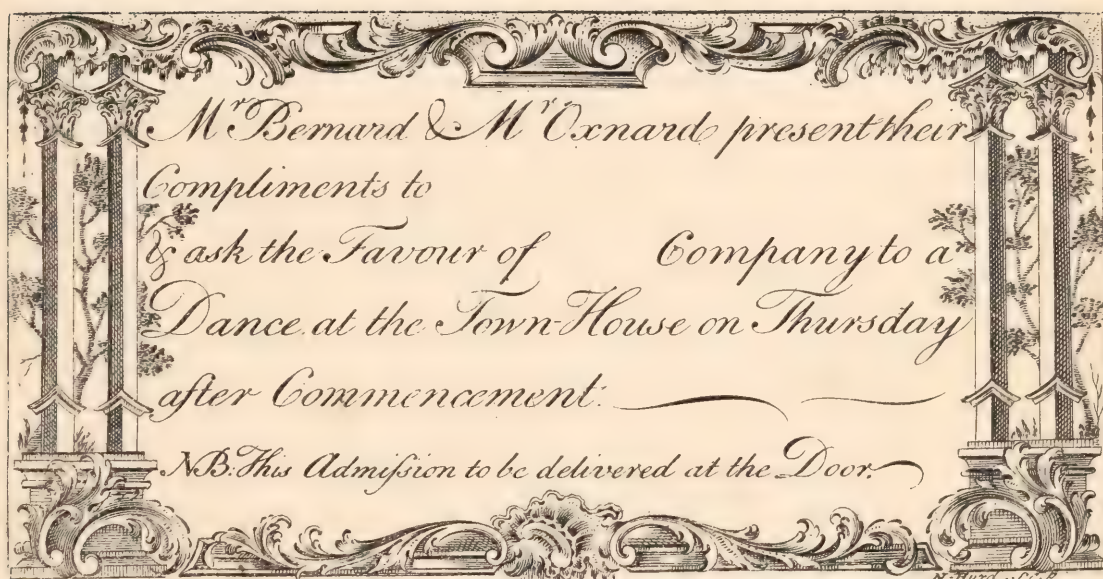 Mr Bernard & Mr Oxnard present their
Compliments to
& ask the Favour of Company to a
Dance at the Town-House on Thursday
after Commencement:
NB. This Admiſsion to be delivered at the Door.